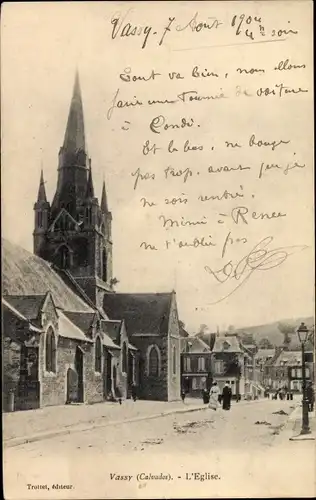 Vassy, 7 Août 1904
4h soir
Tout va bien, nous allons
faire une tournée de voiture
à Condé.
Et là bas, ne bouge
pas trop, avant que je
ne sois rentré.
Mimi à Renée
ne t'oublie pas
Vassy (Calvados). - L'Eglise.
Trolet, éditeur